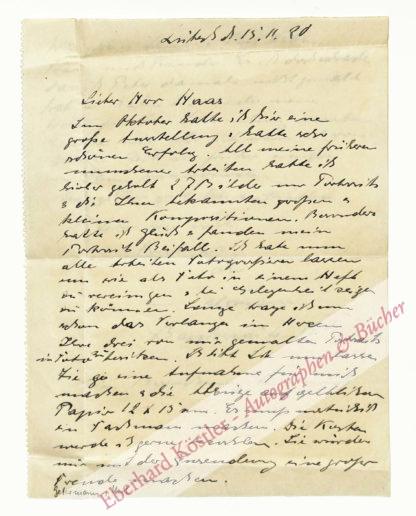 d. 15. 11. 20
Lieber Herr Haas
Im Oktober hatte ich hier eine
große Ausstellung & hatte sehr
schönen Erfolg. All meine früheren
Arbeiten hatte ich
hieher geholt 27 Bilder nur Portraits
& die Ihnen bekannten großen &
kleinen Kompositionen. Besonders
hatte ich Glück & fanden meine
Portraits Beifall. Ich habe nun
alle Arbeiten Photografieren lassen
um wie als in einem Heft
zu vereinigen & bei Gelegenheit zeigen
zu können. Lange trage ich nun
schon das Verlangen im Herzen
Ihre drei von mir gemalten Portraits
in zu besitzen.
Sie je eine Aufnahme für mich
machen & die auf gelblichem
Papier 12 x 15 cm. Es muß natürlich
ein Fachmann machen. Die Kosten
werde ich gerne Sie würden
mir mit der Zusendung eine große
Freude machen.
Eberhard Köstler - Autographen & Bücher